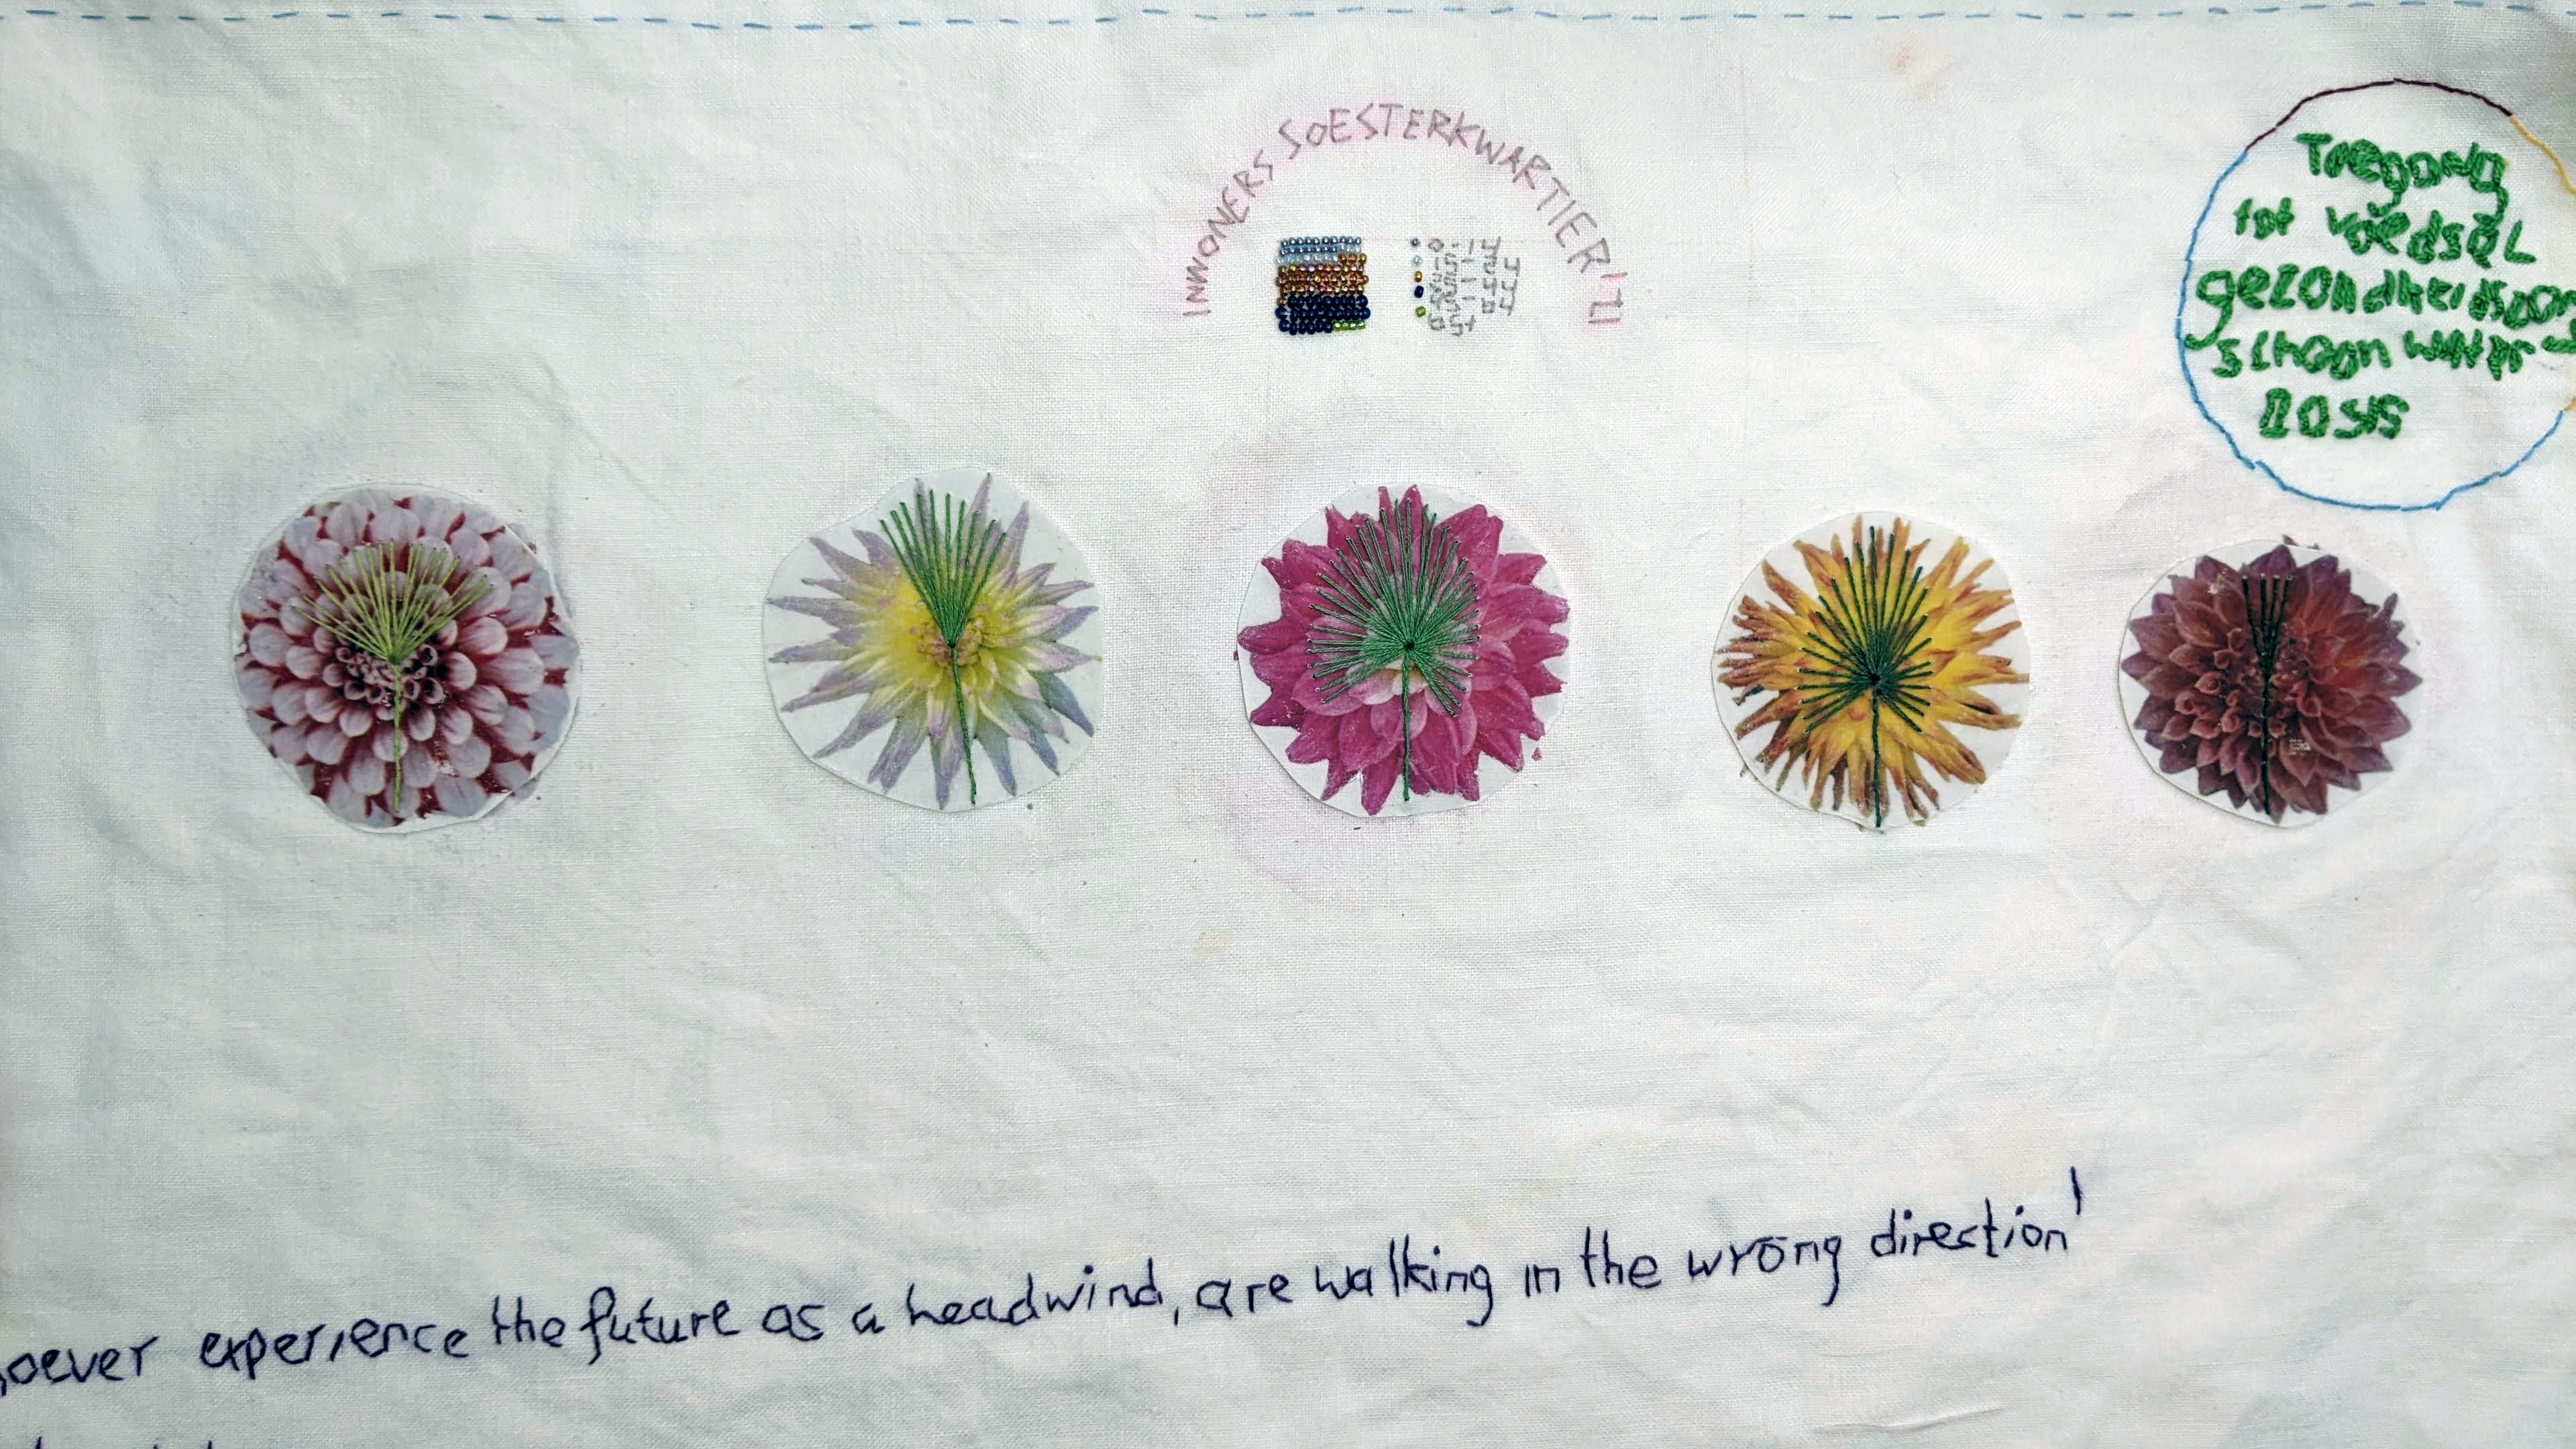 INWONERS SOESTERKWARTIER '21
Toegang
tot voedsel
gezondheidszorg
schoon water
BASIS
oever experience the future as a headwind, are walking in the wrong direction'